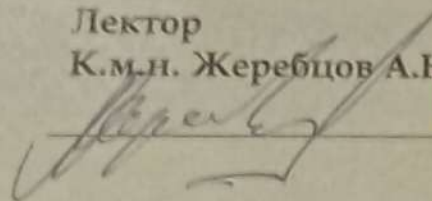 Лектор
К.м.н. Жеребцов А.